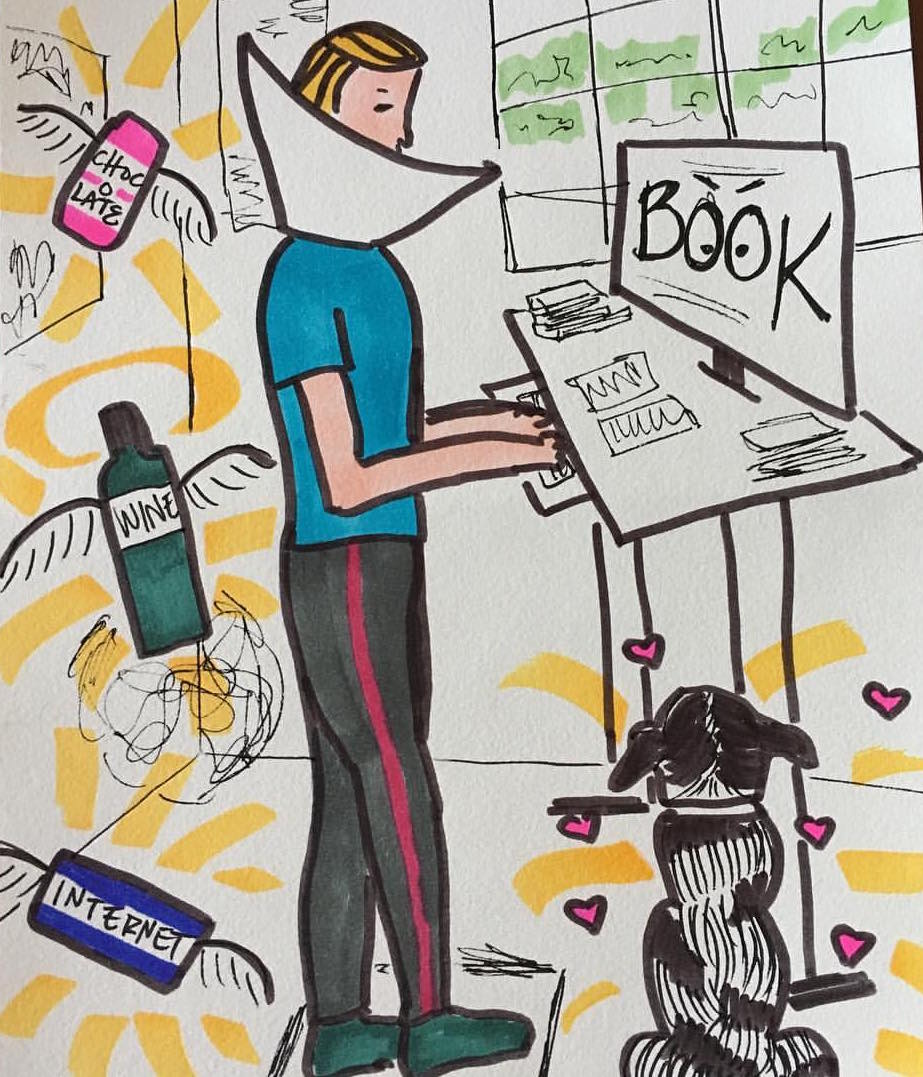 CHOC
O
LATE
BOOK
WINE
INTERNET